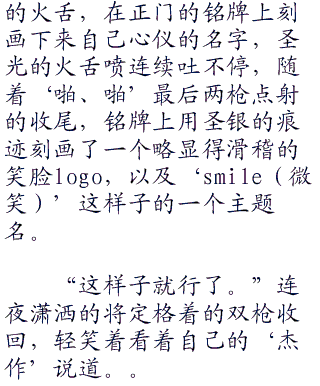 的火舌，在正门的铭牌上刻
画下来自己心仪的名字，圣
光的火舌喷连续吐不停，随
着‘啪、啪’最后两枪点射
的收尾，铭牌上用圣银的痕
迹刻画了一个略显得滑稽的
笑脸logo，以及‘smile（微
笑）’这样子的一个主题
名。
“这样子就行了。”连
夜潇洒的将定格着的双枪收
回，轻笑着看着自己的‘杰
作’说道。。